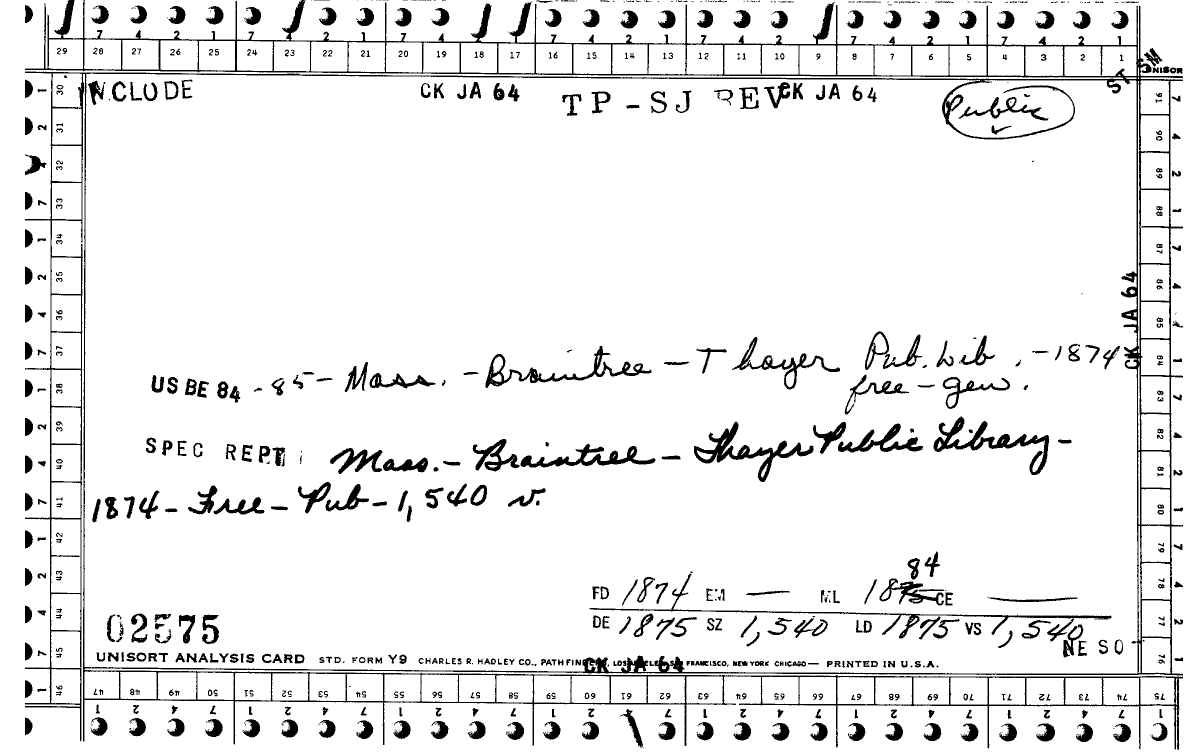 7 4 2 1 7 4 2 1 7 4 2 1 7 4 2 1 7 4 2 1 7 4 2 1 7 4 2 1
29 28 27 26 25 24 23 22 21 20 19 18 17 16 15 14 13 12 11 10 9 8 7 6 5 4 3 2 1 UNISORT
INCLUDE CK JA 64 TP-SJ REV CK JA 64 Public ST SM
CK JA 64
US BE 84 - 85 - Mass. - Braintree - Thayer Pub. Lib. - 1874
free - gen.
SPEC REPT Mass. - Braintree - Thayer Public Library -
1874 - Free - Pub - 1,540 v.
84
FD 1874 EM — ML 1875 CE —
DE 1875 SZ 1,540 LD 1875 VS 1,540
NE SO
02575
UNISORT ANALYSIS CARD STD. FORM Y9 CHARLES R. HADLEY CO., PATHFINDERS, LOS ANGELES, SAN FRANCISCO, NEW YORK CHICAGO — PRINTED IN U.S.A.
CK JA 64
30 31 32 33 34 35 36 37 38 39 40 41 42 43 44 45 46
91 90 89 88 87 86 85 84 83 82 81 80 79 78 77 76
47 48 49 50 51 52 53 54 55 56 57 58 59 60 61 62 63 64 65 66 67 68 69 70 71 72 73 74 75
1 2 4 7 1 2 4 7 1 2 4 7 1 2 4 7 1 2 4 7 1 2 4 7 1 2 4 7 1